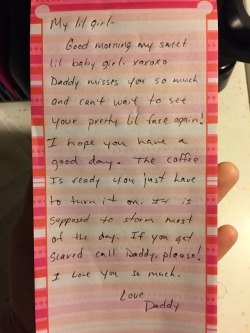 My lil girl-
Good morning my sweet
lil baby girl. xoxoxo
Daddy misses you so much
and can't wait to see
your pretty lil face again!
I hope you have a
good day. The coffee
Is ready you just have
to turn it on. It is
supposed to storm most
of the day. If you get
scared call Daddy, please!
I love you so much.
Love
Daddy